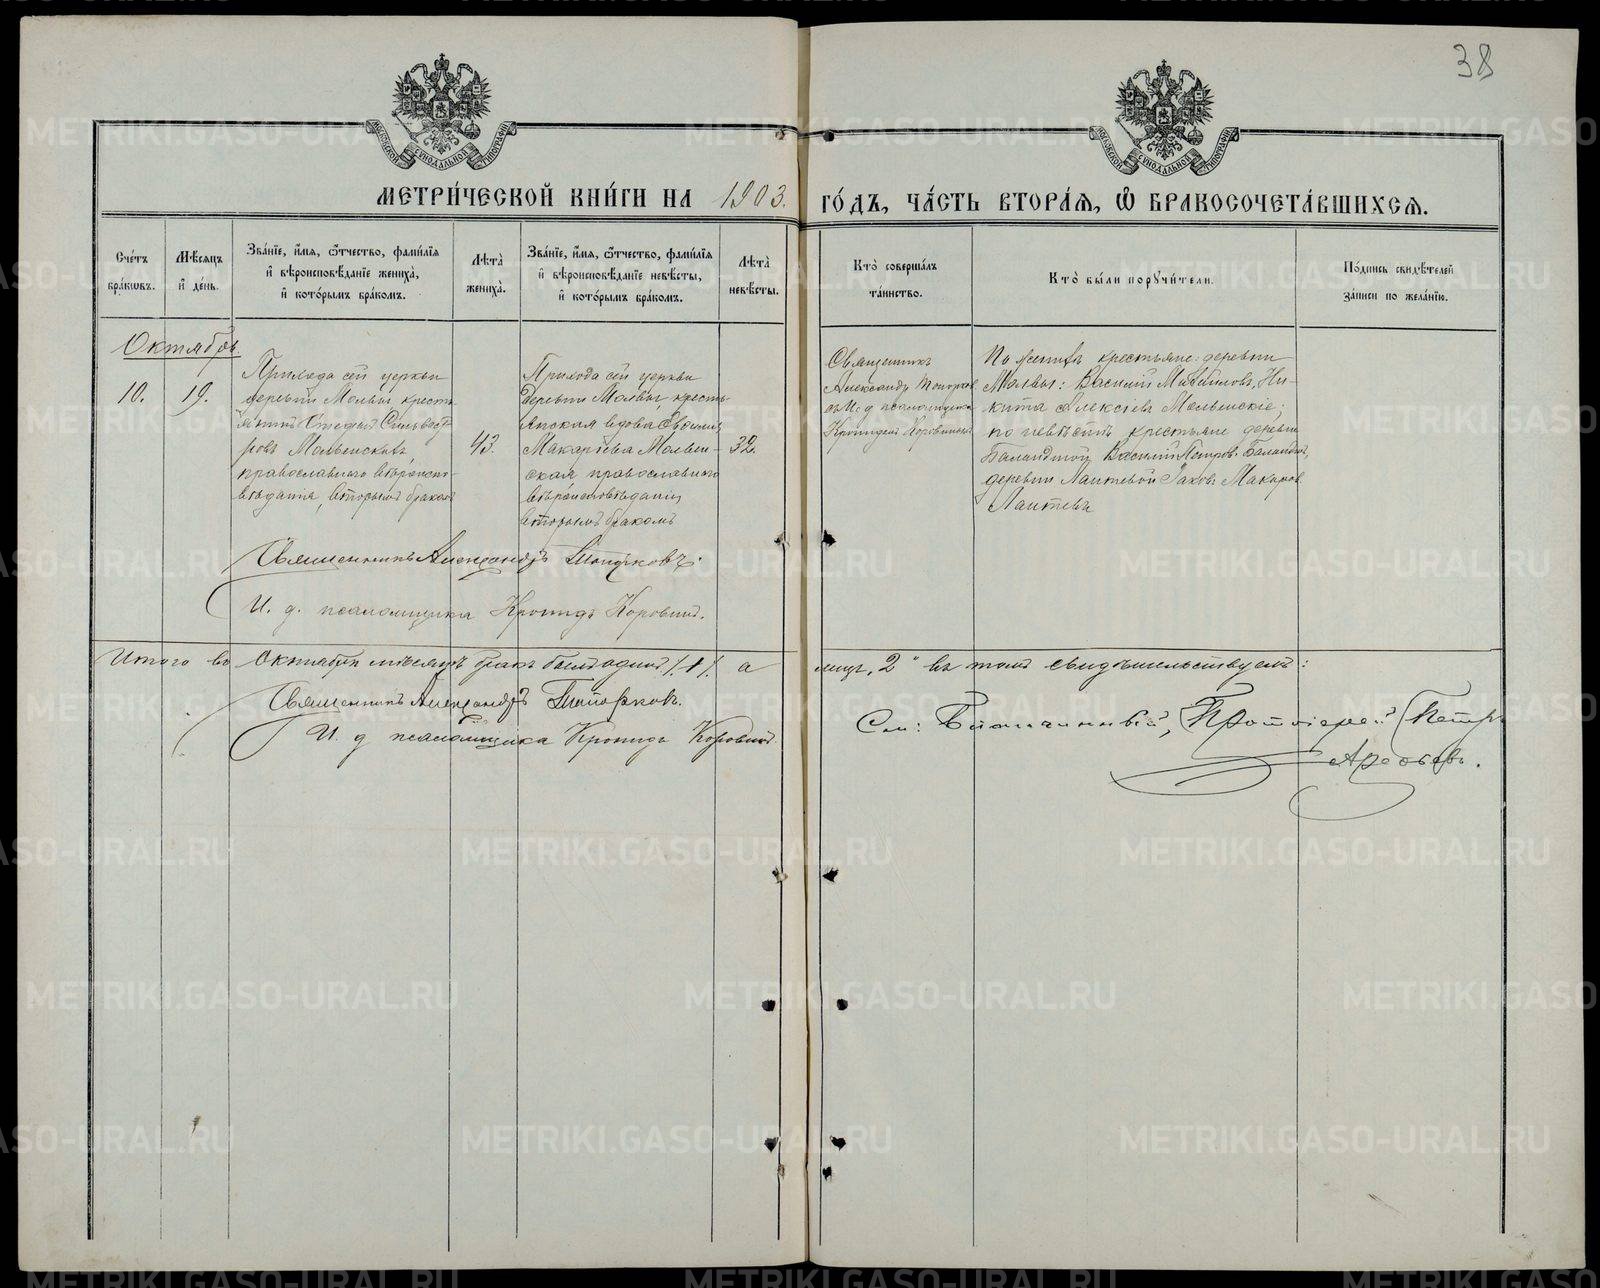 38
МОСКОВСКОЙ СѴНОДАЛЬНОЙ ТИПОГРАФІИ
МОСКОВСКОЙ СѴНОДАЛЬНОЙ ТИПОГРАФІИ
МЕТРИ́ЧЕСКОЙ КНИ́ГИ НА 1903. ГО́ДЪ, ЧА́СТЬ ВТОРА́Я, Ѽ БРАКОСОЧЕТА́ВШИХСЯ.
Сче́тъ бра́кωвъ.
Мѣ́сяцъ и҆ де́нь.
Зва́нїе, и҆́мя, ѻ҆́тчество, фами́лїя
и҆ вѣроисповѣ́данїе жениха̀,
и҆ кото́рымъ бра́комъ.
Лѣта̀ жениха̀.
Зва́нїе, и҆́мя, ѻ҆́тчество, фами́лїя
и҆ вѣроисповѣ́данїе невѣ́сты,
и҆ кото́рымъ бра́комъ.
Лѣта̀ невѣ́сты.
Кто̀ соверша́лъ
та́инство.
Кто̀ бы́ли порꙋчи́тели.
По́дпись свидѣ́телей
за́писи по жела́нїю.
Октябрь.
10.
19.
Прихода сей церкви
деревни Мольвы, кресть-
янинъ Стефанъ Сильвест-
ровъ Мольвенскихъ,
православнаго вѣроиспо-
вѣданія, вторымъ бракомъ
43.
Прихода сей церкви
деревни Мольвы, кресть-
янская вдова
Макаріева Мольвен-
ская православнаго
вѣроисповѣданія,
вторымъ бракомъ
32.
Священникъ
Александръ Топорков
и И. д псаломщика
Кронидъ Коровинъ
По женихѣ крестьяне: деревни
Мольвы: Василій Ни-
кита Алексіевъ Мольвенскіе;
по невѣстѣ крестьяне деревни
Баландиной Василій Петровъ Баландинъ,
деревни Лаптевой Іаковъ Макаровъ
Лаптевъ
Священникъ Александръ Топорковъ.
И. д. псаломщика Кронидъ Коровинъ.
Итого въ Октябрѣ мѣсяцѣ бракъ былъ одинъ /1/. а лицъ „2" въ томъ свидѣтельствуемъ:
Священникъ Александръ Топорковъ.
И. д псаломщика Кронидъ Коровинъ.
См: Благочинный, Протоіерей Петръ
METRIKI.GASO-URAL.RU